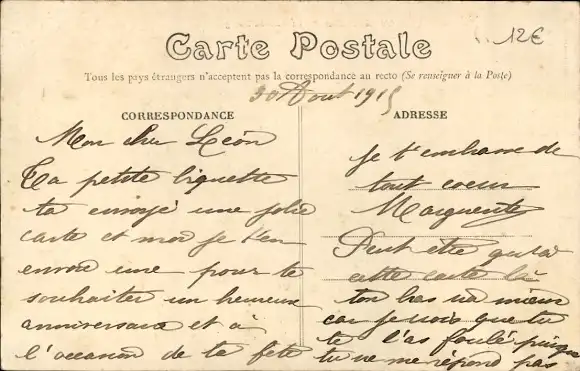 12€
Carte Postale
Tous les pays étrangers n'acceptent pas la correspondance au recto (Se renseigner à la Poste)
30 Aout 1915
CORRESPONDANCE
Mon cher Léon
Ta petite liguette
ta envoyé une jolie
carte et moi je t'en
envoie une pour te
souhaiter un heureux
anniversaire et à
l'occasion de ta fête
ADRESSE
Je t'embrasse de
tout coeur
Marguerite
Peut être qu'à
cette carte là
ton bas va mieux
car je vois que tu
te l'as foulé puisque
tu ne me répond pas